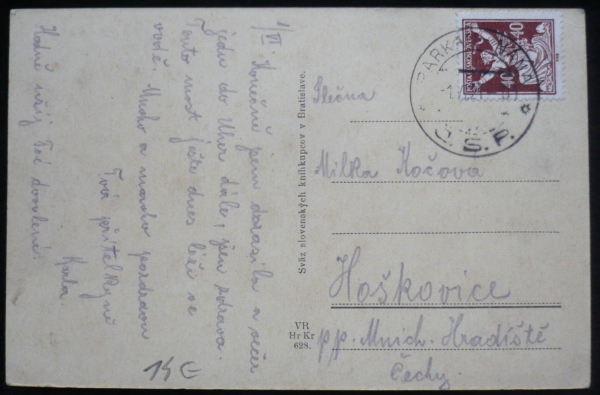 1/VI. Konečně jsem dorazila a večer
jedu do Uher dále, jsem zdráva.
Tento most ještě dnes leží ve
vodě. Mnoho a mnoho pozdravů
Tvá přítelkyně
Karla.
Hodně užij své dovolené.
14 E
Svåz slovenských kníhkupcov v Bratislave.
VR
Hr Kr
628.
40
40
PARKÁ
NÁNA
Č. S. P.
Slečna
Milka Kočova
Hoškovice
p.p. Mnich. Hradiště
Čechy.